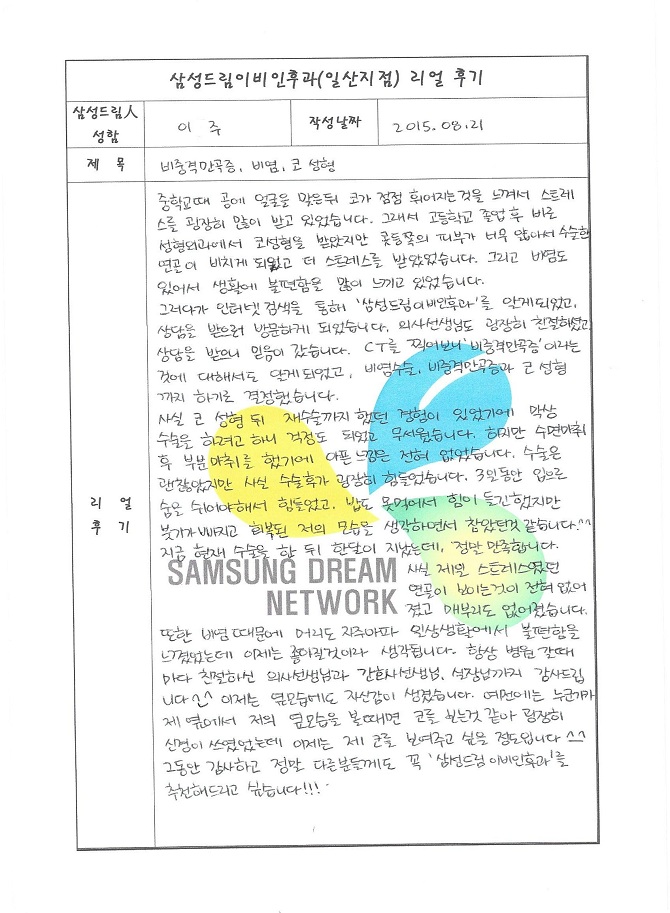 삼성드림이비인후과(일산지점) 리얼 후기
삼성드림人
성함
이 주
작성날짜
2015.08.21
제 목
비중격만곡증, 비염, 코 성형
리 얼
후 기
중학교때 공에 얼굴을 맞은뒤 코가 점점 휘어지는것을 느껴서 스트레
스를 굉장히 많이 받고 있었습니다. 그래서 고등학교 졸업 후 바로
성형외과에서 코성형을 받았지만 콧등쪽의 피부가 너무 얇아서 수술한
연골이 비치게 되었고 더 스트레스를 받았었습니다. 그리고 비염도
있어서 생활에 불편함을 많이 느끼고 있었습니다.
그러다가 인터넷 검색을 통해 '삼성드림이비인후과'를 알게되었고,
상담을 받으러 방문하게 되었습니다. 의사선생님도 굉장히 친절하셨고
상담을 받으니 믿음이 갔습니다. CT를 찍어보니 '비중격만곡증'이라는
것에 대해서도 알게 되었고, 비염수술, 비중격만곡증과 코 성형
까지 하기로 결정했습니다.
사실 코 성형 뒤 재수술까지 했던 경험이 있었기에 막상
수술을 하려고 하니 걱정도 되었고 무서웠습니다. 하지만 수면마취
후 부분마취를 했기에 아픈 느낌은 전혀 없었습니다. 수술은
괜찮았지만 사실 수술후가 굉장히 힘들었습니다. 3일동안 입으로
숨을 쉬어야해서 힘들었고, 밥도 못먹어서 힘이 들긴했지만
붓기가 빠지고 회복된 저의 모습을 생각하면서 참았던것 같습니다.^^
지금 현재 수술을 한 뒤 한달이 지났는데, 정말 만족합니다.
SAMSUNG DREAM
NETWORK
사실 제일 스트레스였던
연골이 보이는것이 전혀 없어
졌고 매부리도 없어졌습니다.
또한 비염때문에 머리도 자주아파 일상생활에서 불편함을
느꼈었는데 이제는 좋아질것이라 생각됩니다. 항상 병원 갈때
마다 친절하신 의사선생님과 간호사선생님, 실장님까지 감사드립
니다^^ 이제는 옆모습에도 자신감이 생겼습니다. 예전에는 누군가가
제 옆에서 저의 옆모습을 볼때면 코를 보는것 같아 굉장히
신경이 쓰였었는데 이제는 제 코를 보여주고 싶을 정도입니다^^
그동안 감사하고 정말 다른분들께도 꼭 '삼성드림 이비인후과'를
추천해드리고 싶습니다!!!